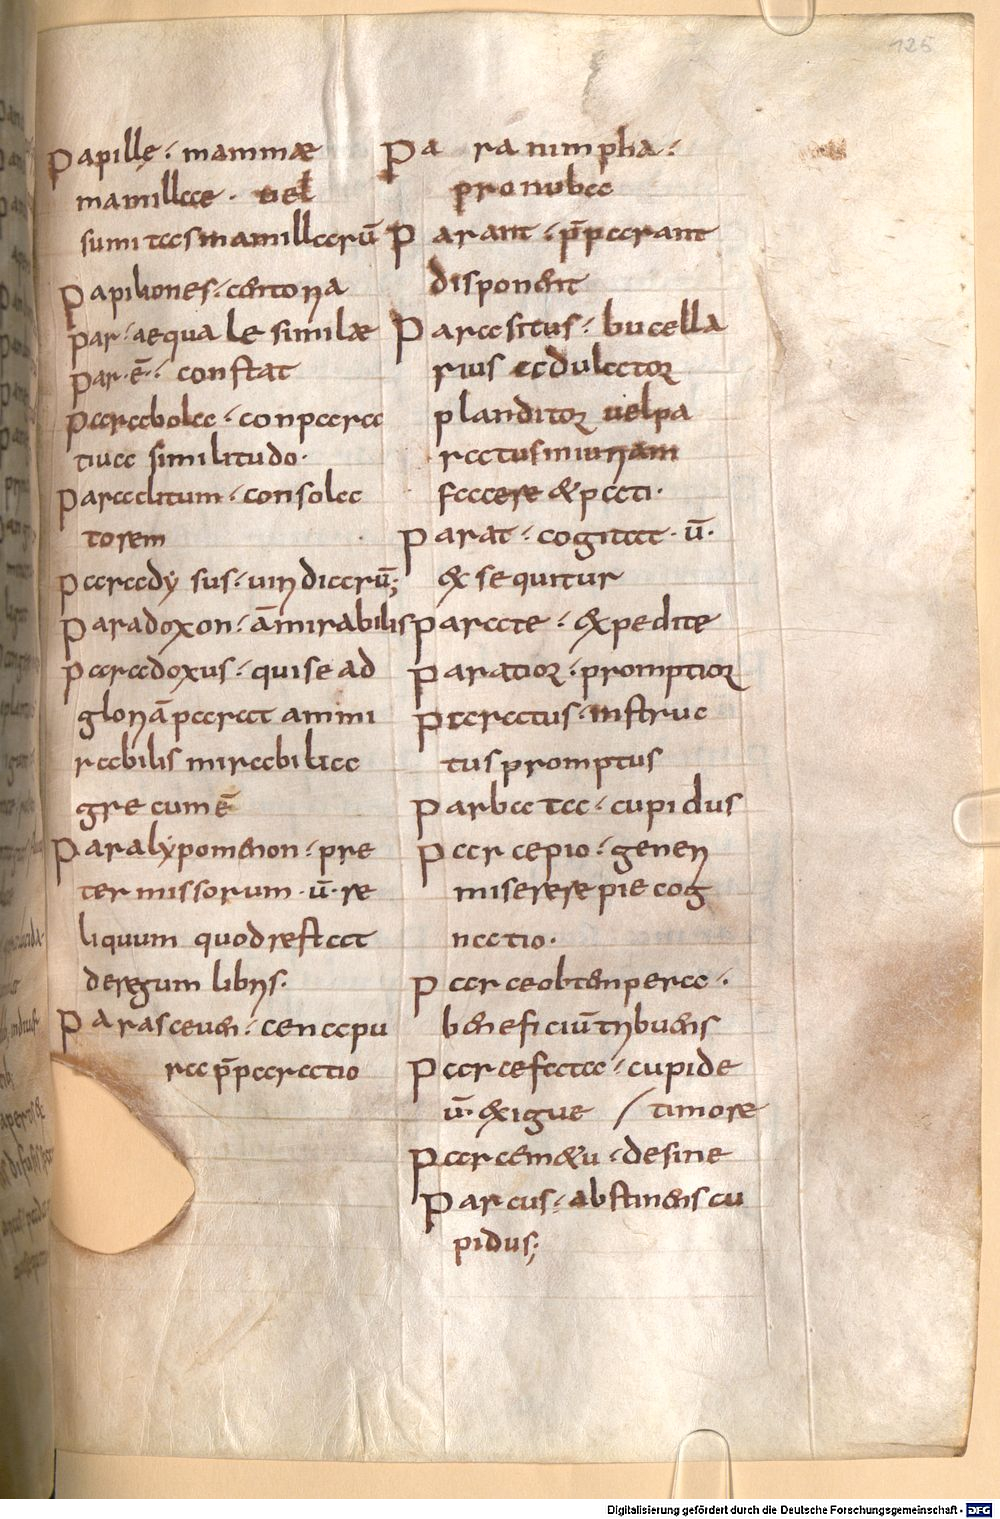 125
Papillę· mammæ
mamillae· vel
sumitas mamillarū
Papiliones· centoria
par· aequale similæ
par·ē· constat
parabola· conpara
tiua similitudo·
paraclitum· consola
torem
paradẏsus· uiridiarū;
paradoxon· āmirabilis
paradoxus· qui se ad
gloriā parat ammi
rabilis mirabilia
gre cum ē
Paralẏpomenon· pre
termissorum· ū· re
liquum quod restat
de regum libris·
Parasceuen· caena pu
ra p̄paratio
Pa ranimpha·
pronuba
Parant· p̄parant
disponent
Parasitus· bucella
rius adulator
planditor uel pa
ratus iniuriam
facere & pati·
Parat· cogitat· ū·
exsequitur
parate· expedite
paratior· promptior
paratus· instruc
tus promptus
parbata· cupidus
parcepio· generi
miserere pie cog
natio·
parce obtenpera·
beneficiū tribuens
parcefacta· cupide
ū· exigue / timore
parcem&u· desine
parcus· abstinens cu
pidus;
Digitalisierung gefördert durch die Deutsche Forschungsgemeinschaft - DFG